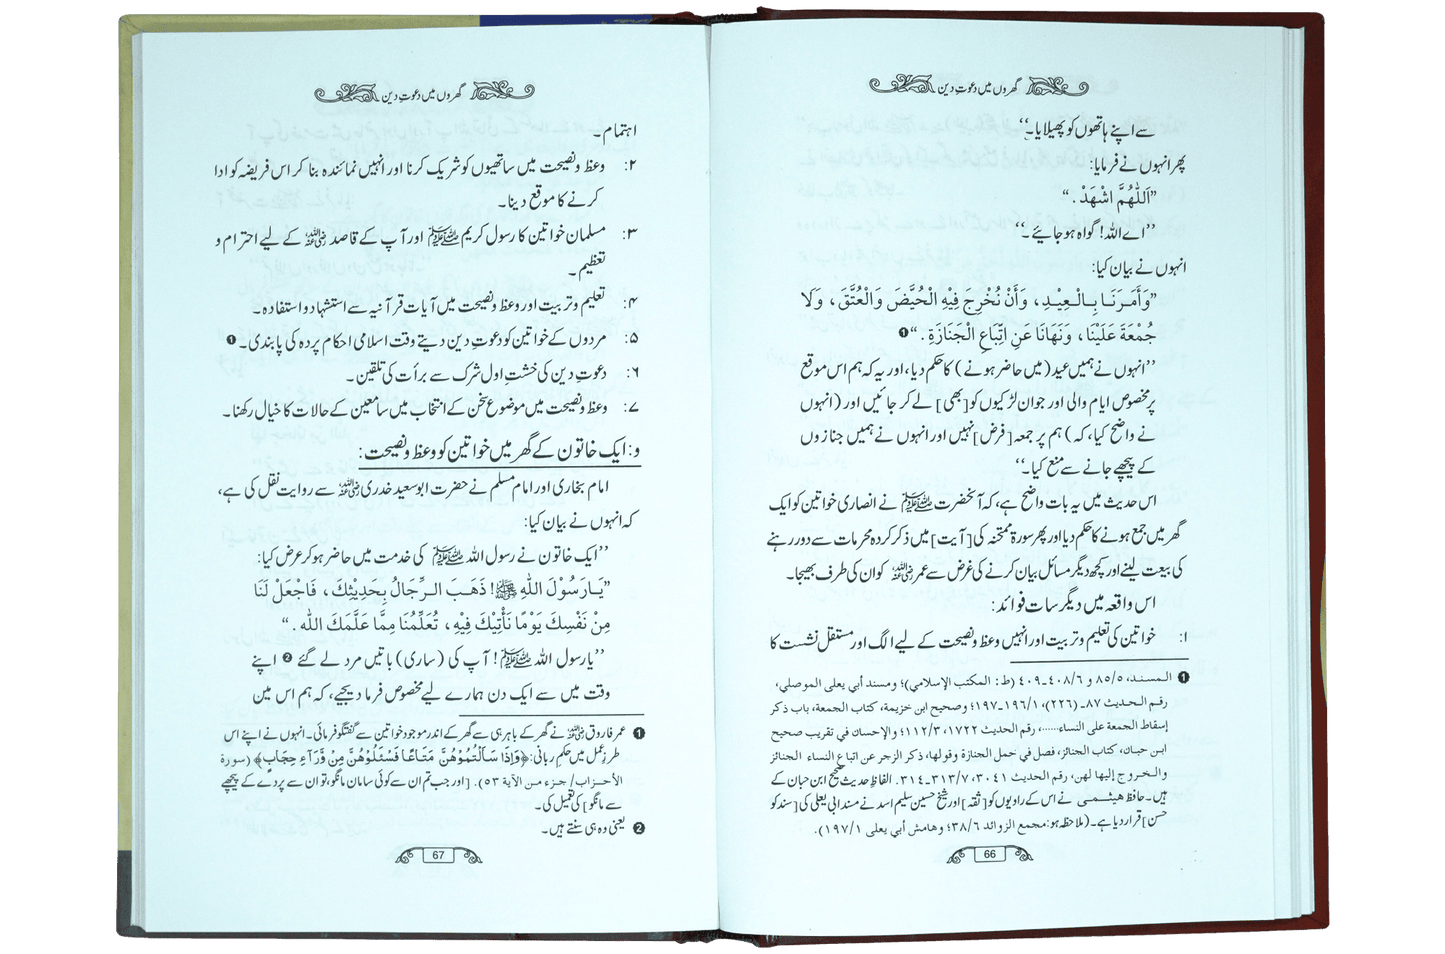 گھروں میں دعوتِ دین
سے اپنے ہاتھوں کو پھیلایا۔‘‘
پھر انہوں نے فرمایا:
”اَللّٰهُمَّ اشْهَدْ . “
’’اے اللہ! گواہ ہو جائیے۔‘‘
انہوں نے بیان کیا:
”وَأَمَرَنَا بِالْعِيْدِ، وَأَنْ نُخْرِجَ فِيْهِ الْحُيَّضَ وَالْعُتَّقَ، وَلَا
جُمْعَةَ عَلَيْنَا، وَنَهَانَا عَنِ اتِّبَاعِ الْجَنَازَةِ . “❶
’’انہوں نے ہمیں عید (میں حاضر ہونے) کا حکم دیا، اور یہ کہ ہم اس موقع
پر مخصوص ایام والی اور جوان لڑکیوں کو [بھی] لے کر جائیں اور (انہوں
نے واضح کیا، کہ) ہم پر جمعہ [فرض] نہیں اور انہوں نے ہمیں جنازوں
کے پیچھے جانے سے منع کیا۔‘‘
اس حدیث میں یہ بات واضح ہے، کہ آنحضرت ﷺ نے انصاری خواتین کو ایک
گھر میں جمع ہونے کا حکم دیا اور پھر سورۃ ممتحنہ کی [آیت] میں ذکر کردہ محرمات سے دور رہنے
کی بیعت لینے اور کچھ دیگر مسائل بیان کرنے کی غرض سے عمر رضی اللہ عنہ کو ان کی طرف بھیجا۔
اس واقعہ میں دیگر سات فوائد:
۱: خواتین کی تعلیم و تربیت اور انہیں وعظ و نصیحت کے لیے الگ اور مستقل نشست کا
❶ المسند، ٨٥/٥ و ٤٠٨/٦-٤٠٩ (ط: المكتب الإسلامي)؛ ومسند أبي يعلى الموصلي،
رقم الحديث ٨٧-(٢٢٦)، ١٩٦/١-١٩٧؛ وصحيح ابن خزيمة، كتاب الجمعة، باب ذكر
إسقاط الجمعة على النساء......، رقم الحديث ١٧٢٢، ١١٢/٣؛ والإحسان في تقريب صحيح
ابن حبان، كتاب الجنائز، فصل في حمل الجنازة وقولها، ذكر الزجر عن اتباع النساء الجنائز
والخروج إليها لهن، رقم الحديث ٣٠٤١، ٣١٣/٧-٣١٤. الفاظِ حدیث صحیح ابن حبان کے
ہیں۔ حافظ هیثمی نے اس کے راویوں کو [ثقہ] اور شیخ حسین سلیم اسد نے مسند ابی یعلی کی [سند کو
حسن] قرار دیا ہے۔ (ملاحظہ ہو: مجمع الزوائد ٣٨/٦؛ وهامش أبي يعلى ١٩٧/١).
66
گھروں میں دعوتِ دین
اہتمام۔
۲: وعظ و نصیحت میں ساتھیوں کو شریک کرنا اور انہیں نمائندہ بنا کر اس فریضہ کو ادا
کرنے کا موقع دینا۔
۳: مسلمان خواتین کا رسول کریم ﷺ اور آپ کے قاصد رضی اللہ عنہ کے لیے احترام و
تعظیم۔
۴: تعلیم و تربیت اور وعظ و نصیحت میں آیات قرآنیہ سے استشہاد و استفادہ۔
۵: مردوں کے خواتین کو دعوتِ دین دیتے وقت اسلامی احکام پردہ کی پابندی۔❶
۶: دعوتِ دین کی خشتِ اول شرک سے برأت کی تلقین۔
۷: وعظ و نصیحت میں موضوع سخن کے انتخاب میں سامعین کے حالات کا خیال رکھنا۔
و: ایک خاتون کے گھر میں خواتین کو وعظ و نصیحت:
امام بخاری اور امام مسلم نے حضرت ابو سعید خدری رضی اللہ عنہ سے روایت نقل کی ہے،
کہ انہوں نے بیان کیا:
’’ایک خاتون نے رسول اللہ ﷺ کی خدمت میں حاضر ہو کر عرض کیا:
”يَارَسُوْلَ اللّٰهِ ﷺ! ذَهَبَ الرِّجَالُ بِحَدِيْثِكَ، فَاجْعَلْ لَنَا
مِنْ نَفْسِكَ يَوْمًا نَأْتِيْكَ فِيْهِ، تُعَلِّمُنَا مِمَّا عَلَّمَكَ اللّٰه . “
’’یا رسول اللہ ﷺ! آپ کی (ساری) باتیں مرد لے گئے ❷ اپنے
وقت میں سے ایک دن ہمارے لیے مخصوص فرما دیجیے، کہ ہم اس میں
❶ عمر فاروق رضی اللہ عنہ نے گھر کے باہر ہی سے گھر کے اندر موجود خواتین سے گفتگو فرمائی۔ انہوں نے اپنے اس
طرزِ عمل میں حکمِ ربانی: ﴿وَإِذَا سَأَلْتُمُوْهُنَّ مَتَاعًا فَسْئَلُوْهُنَّ مِنْ وَّرَآءِ حِجَابٍ﴾ (سورة
الأحزاب/ جزء من الآية ٥٣). [اور جب تم ان سے کوئی سامان مانگو، تو ان سے پردے کے پیچھے
سے مانگو] کی تعمیل کی۔
❷ یعنی وہ ہی سنتے ہیں۔
67